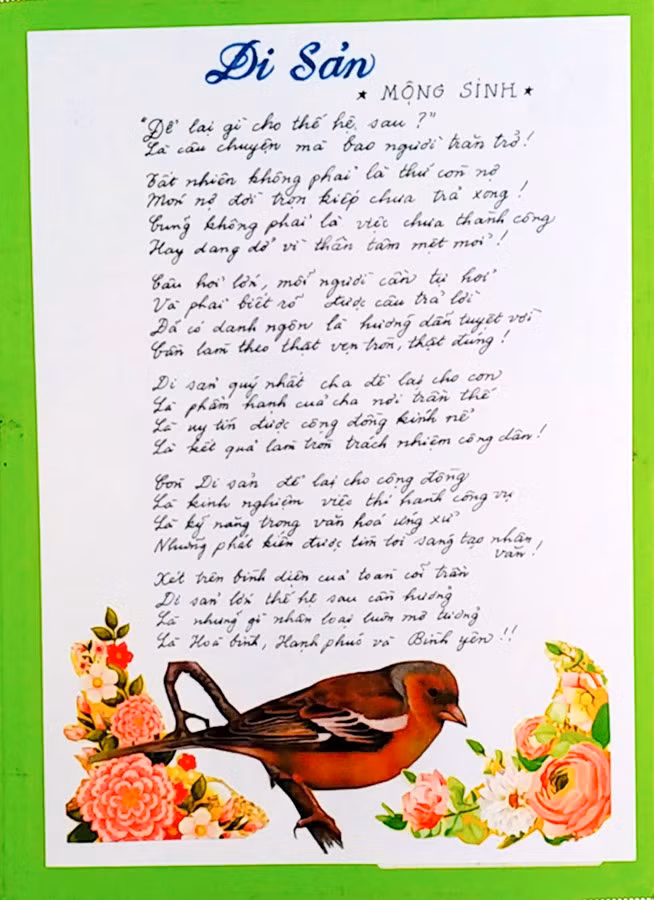 Di Sản
★ MỘNG SINH ★
"Để lại gì cho thế hệ sau ?"
Là câu chuyện mà bao người trăn trở!
Tất nhiên không phải là thứ còn nợ
Món nợ đời trọn kiếp chưa trả xong!
Cũng không phải là việc chưa thành công
Hay dang dở vì thân tâm mệt mỏi!
Câu hỏi lớn, mỗi người cần tự hỏi
Và phải biết rõ được câu trả lời
Đã có danh ngôn là hướng dẫn tuyệt vời
Cần làm theo thật vẹn tròn, thật đúng!
Di sản quý nhất cha để lại cho con
Là phẩm hạnh của cha nơi trần thế
Là uy tín được cộng đồng kính nể
Là kết quả làm tròn trách nhiệm công dân!
Còn Di sản để lại cho cộng đồng
Là kinh nghiệm việc thi hành công vụ
Là kỹ năng trong văn hoá ứng xử
Những phát kiến được tìm tòi sáng tạo nhân
văn!
Xét trên bình diện của toàn cõi trần
Di sản lớn thế hệ sau cần hưởng
Là những gì nhân loại luôn mơ tưởng
Là Hoà bình, Hạnh phúc và Bình yên!!